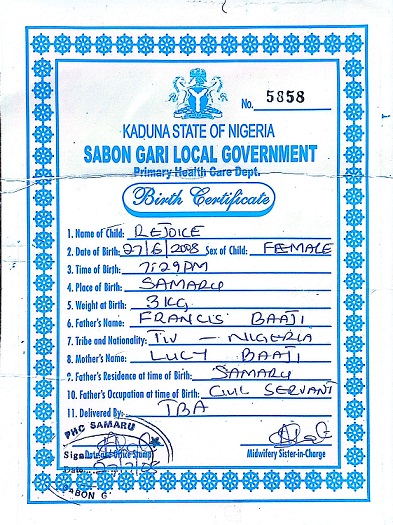 No. 5858
KADUNA STATE OF NIGERIA
SABON GARI LOCAL GOVERNMENT
Primary Health Care Dept.
Birth Certificate
1. Name of Child: REJOICE
2. Date of Birth: 27/6/2008 Sex of Child: FEMALE
3. Time of Birth: 7:29PM
4. Place of Birth: SAMARU
5. Weight at Birth: 3KG
6. Father's Name: FRANCIS BAAJI
7. Tribe and Nationality: TIV - NIGERIA
8. Mother's Name: LUCY BAAJI
9. Father's Residence at time of Birth: SAMARU
10. Father's Occupation at time of Birth: CIVIL SERVANT
11. Delivered By: TBA
PHC SAMARU
Sign
Date and Office Stamp
Midwifery Sister-in-Charge
Date
SABON G